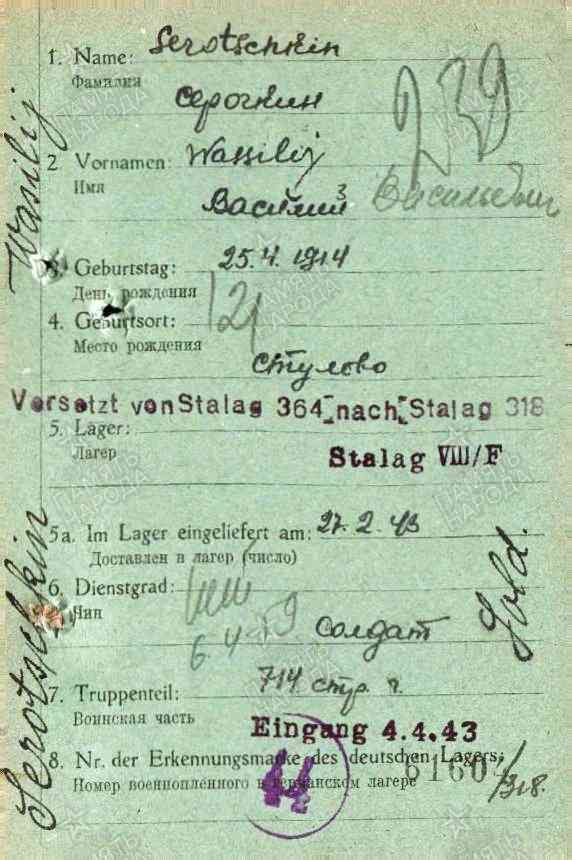 Serotschkin
1. Name:
Фамилия
Серочкин
239
2 Vornamen: Wassilij
Имя
Василий
Васильевич
3. Geburtstag: 25.4.1914
День рождения
4. Geburtsort:
Место рождения
Стулово
Versetzt von Stalag 364 nach Stalag 318
5. Lager:
Лагер
Stalag VIII/F
5a. Im Lager eingeliefert am: 27.2.43
Доставлен в лагер (число)
6. Dienstgrad:
Чин
солдат
Sold.
7. Truppenteil: 714 стр. п.
Воинская часть
Eingang 4.4.43
8. Nr. der Erkennungsmarke des deutschen Lagers:
Номер военнопленного в германском лагере
/318.
Wasilij
Serotschkin
ПАМЯТЬ НАРОДА